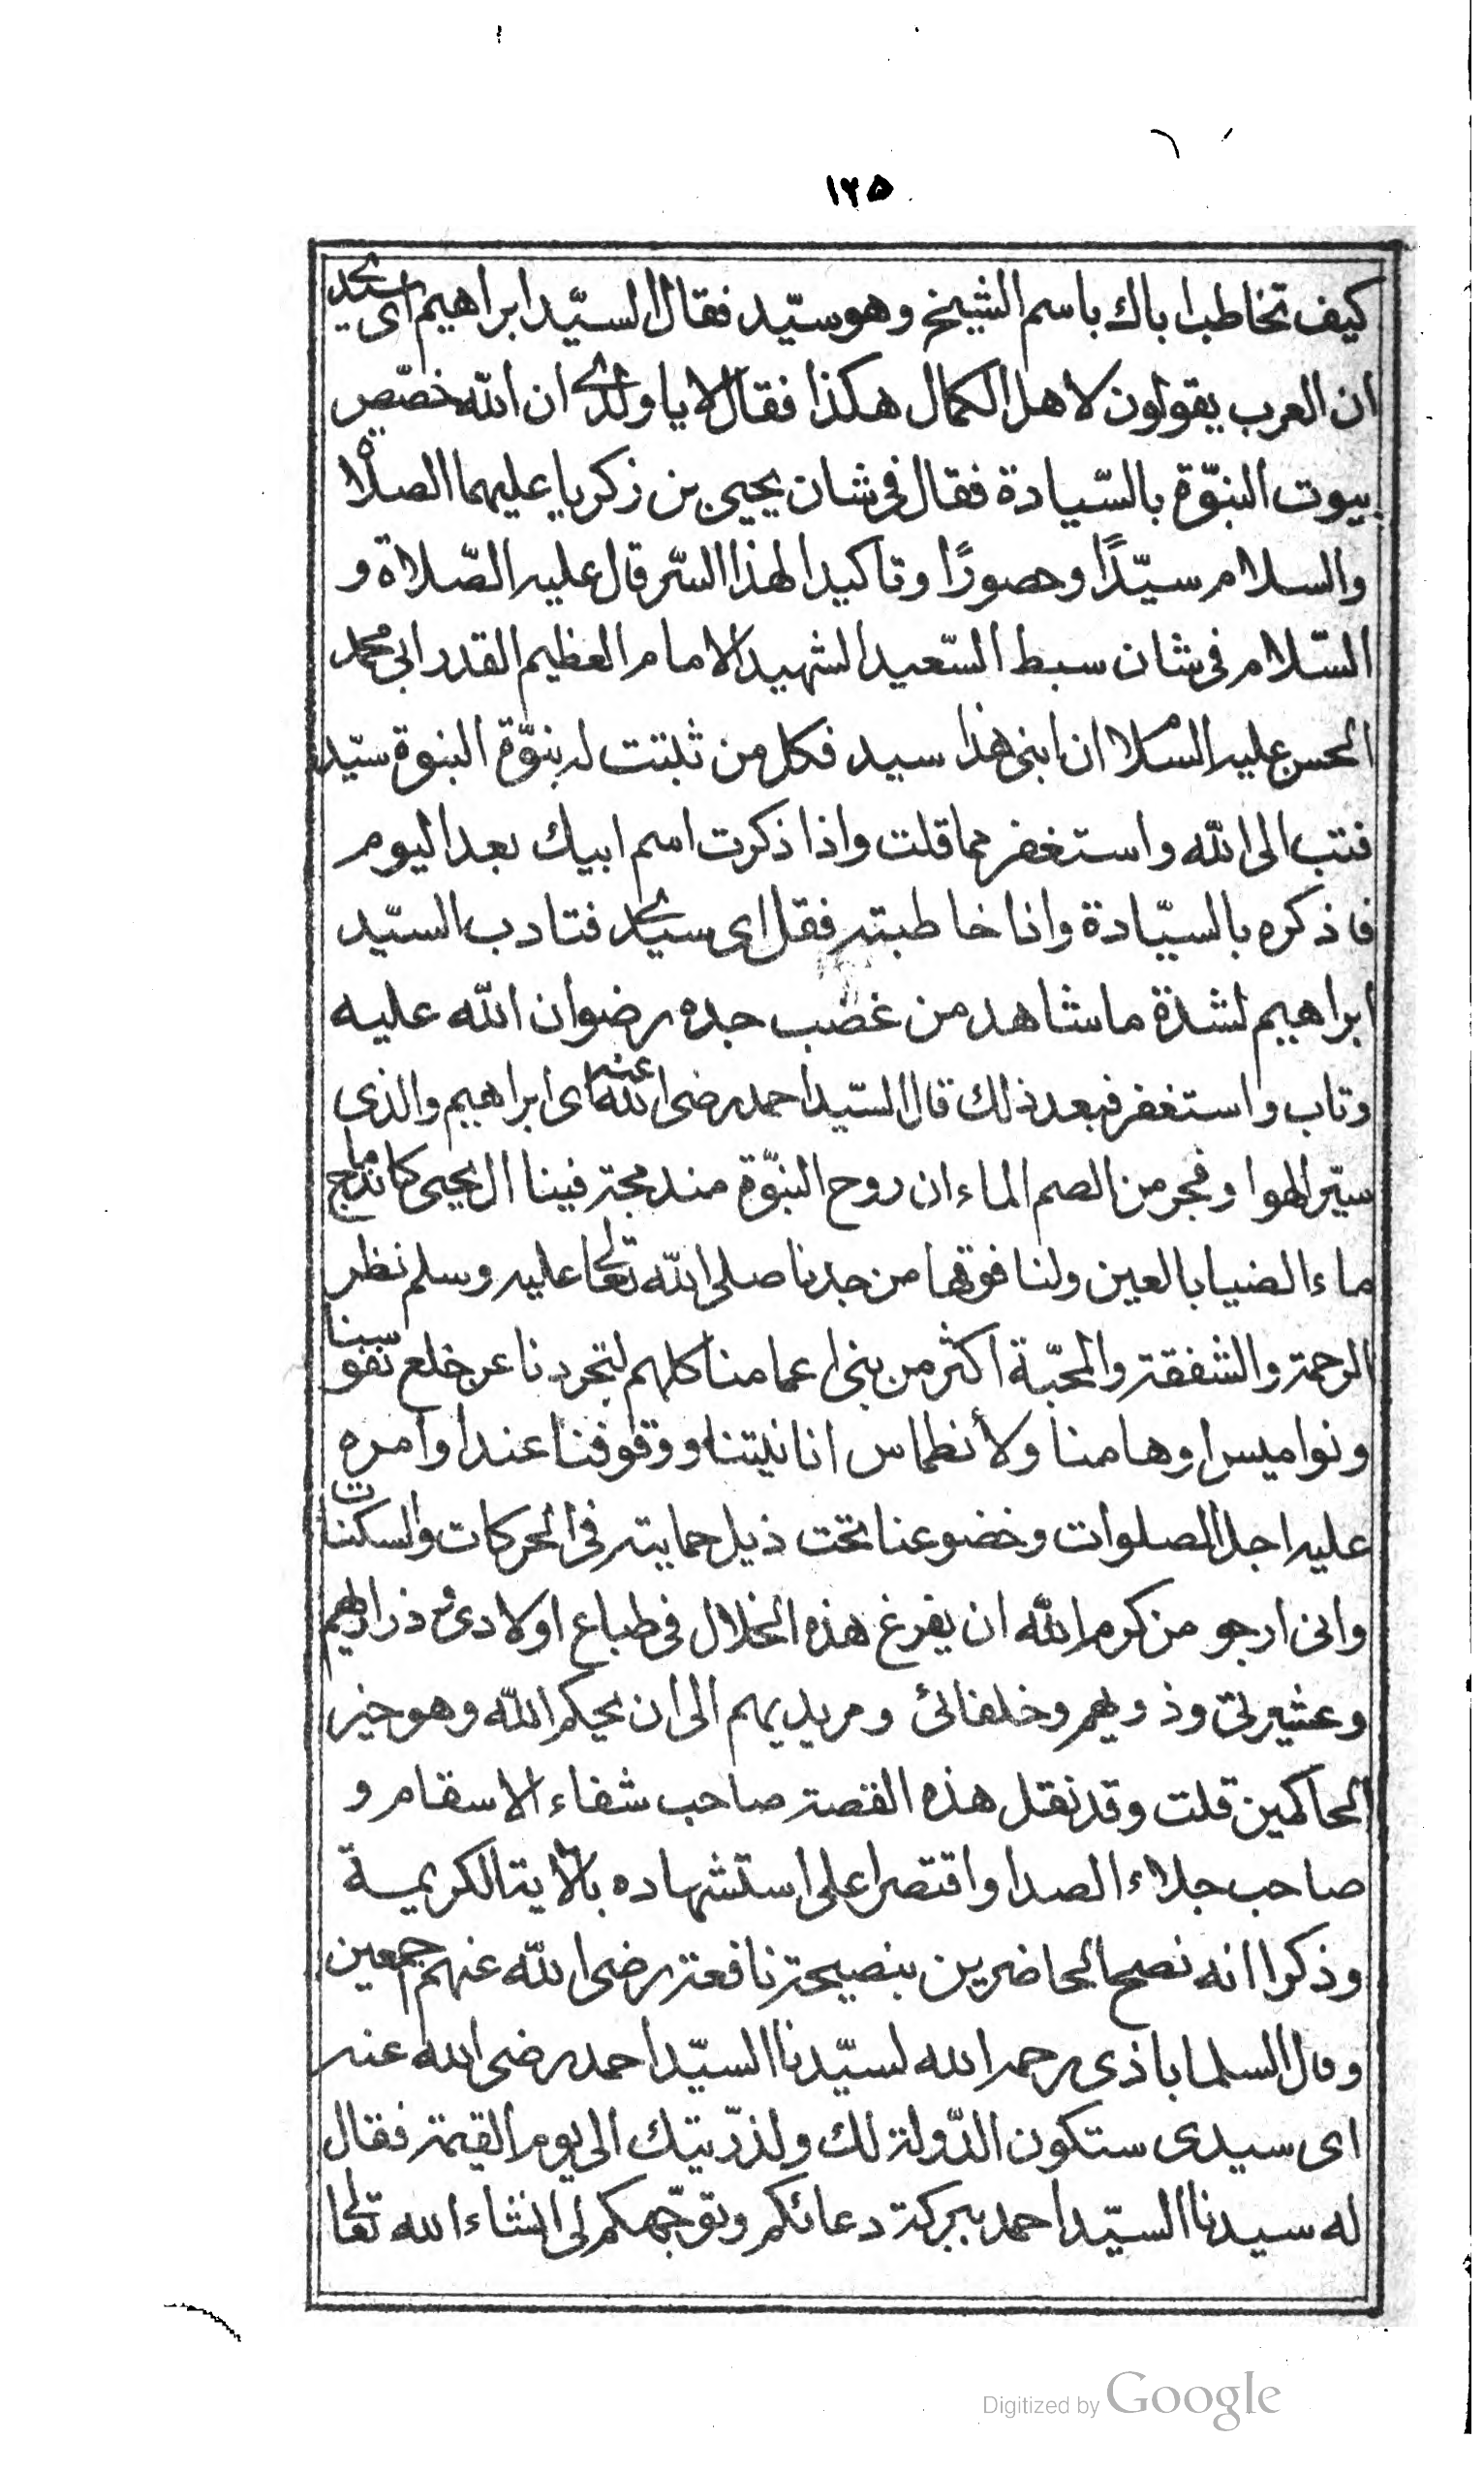 ١٢٥
كيف تخاطب اباك باسم الشيخ وهو سيّد فقال السيّد ابراهيم اى سيدى
ان العرب يقولون لاهل الكمال هكذا فقال لا يا ولدى ان الله خصّص
بيوت النبوّة بالسّيادة فقال فى شان يحيى بن زكريا عليهما الصلاة
والسلام سيّدًا وحصورًا وتاكيدا لهذا السّر قال عليه الصّلاة و
السّلام فى شان سبط السّعيد الشهيد الامام العظيم القدر ابى محمد
الحسن عليه السّلام ان ابنى هذا سيد فكل من ثبتت له بنوّة النبوة سيّد
فتب الى الله واستغفر مما قلت واذا ذكرت اسم ابيك بعد اليوم
فاذكره بالسيّادة واذا خاطبته فقل اى سيدى فتادب السيّد
ابراهيم لشدة ما شاهد من غضب جده رضوان الله عليه
وتاب واستغفر فبعد ذلك قال السيّد احمد رضى الله عنه اى ابراهيم والذى
سيّر الهوا وفجر من الصم الماء ان روح النبوّة مندمجة فينا ال يحيى كاندماج
ماء الضيا بالعين ولنا فوقها من جدنا صلى الله تعالى عليه وسلم نظر
الرحمة والشفقة والمحبّة اكثر من بنى اعمامنا كلهم لتجردنا عن خلع نفوسنا
ونواميس اوهامنا ولأنطماس انانيتنا ووقوفنا عند اوامره
عليه اجل الصلوات وخضوعنا تحت ذيل حمايته فى الحركات والسكنات
وانى ارجو من كرم الله ان يفرغ هذه الخلال فى طباع اولادى وذراريهم
وعشيرتى وذويهم وخلفائى ومريديهم الى ان يحكم الله وهو خير
الحاكمين قلت وقد نقل هذه القصة صاحب شفاء الاسقام و
صاحب جلاء الصدا واقتصرا على استشهاده بالآية الكريمة
وذكرا انه نصح الحاضرين بنصيحة نافعة رضى الله عنهم اجمعين
وقال السلماباذى رحمه الله لسيّدنا السيّد احمد رضى الله عنه
اى سيدى ستكون الدّولة لك ولذرّيتك الى يوم القيمة فقال
له سيدنا السيّد احمد ببركة دعائكم وتوجّهكم لى انشاء الله تعالى
Digitized by Google